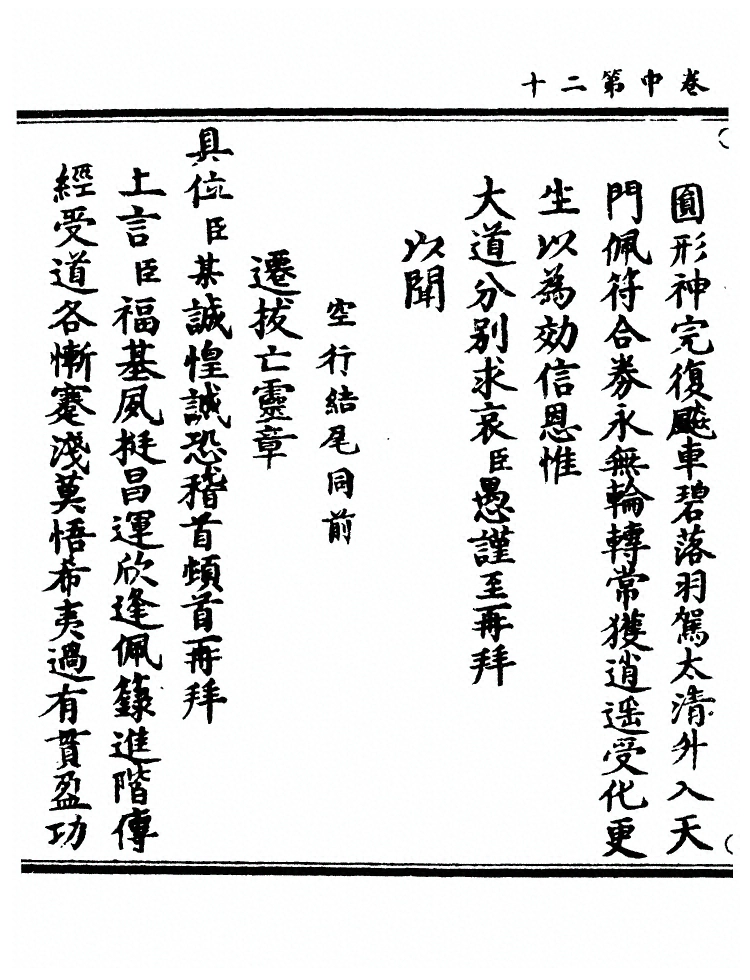 卷中第二十
圓形神完復飈車碧落羽駕太清外入天
門佩符合券永無輪轉常獲逍遥受化更
生以為効信恩惟
大道分别求哀臣愚謹至再拜
以聞
空行結尾同前
遷拔亡靈章
具位臣某誠惶誠恐稽首頓首再拜
上言臣福基夙挺昌運欣逢佩籙進階傳
經受道各慚蹇淺莫悟希夷過有貫盈功